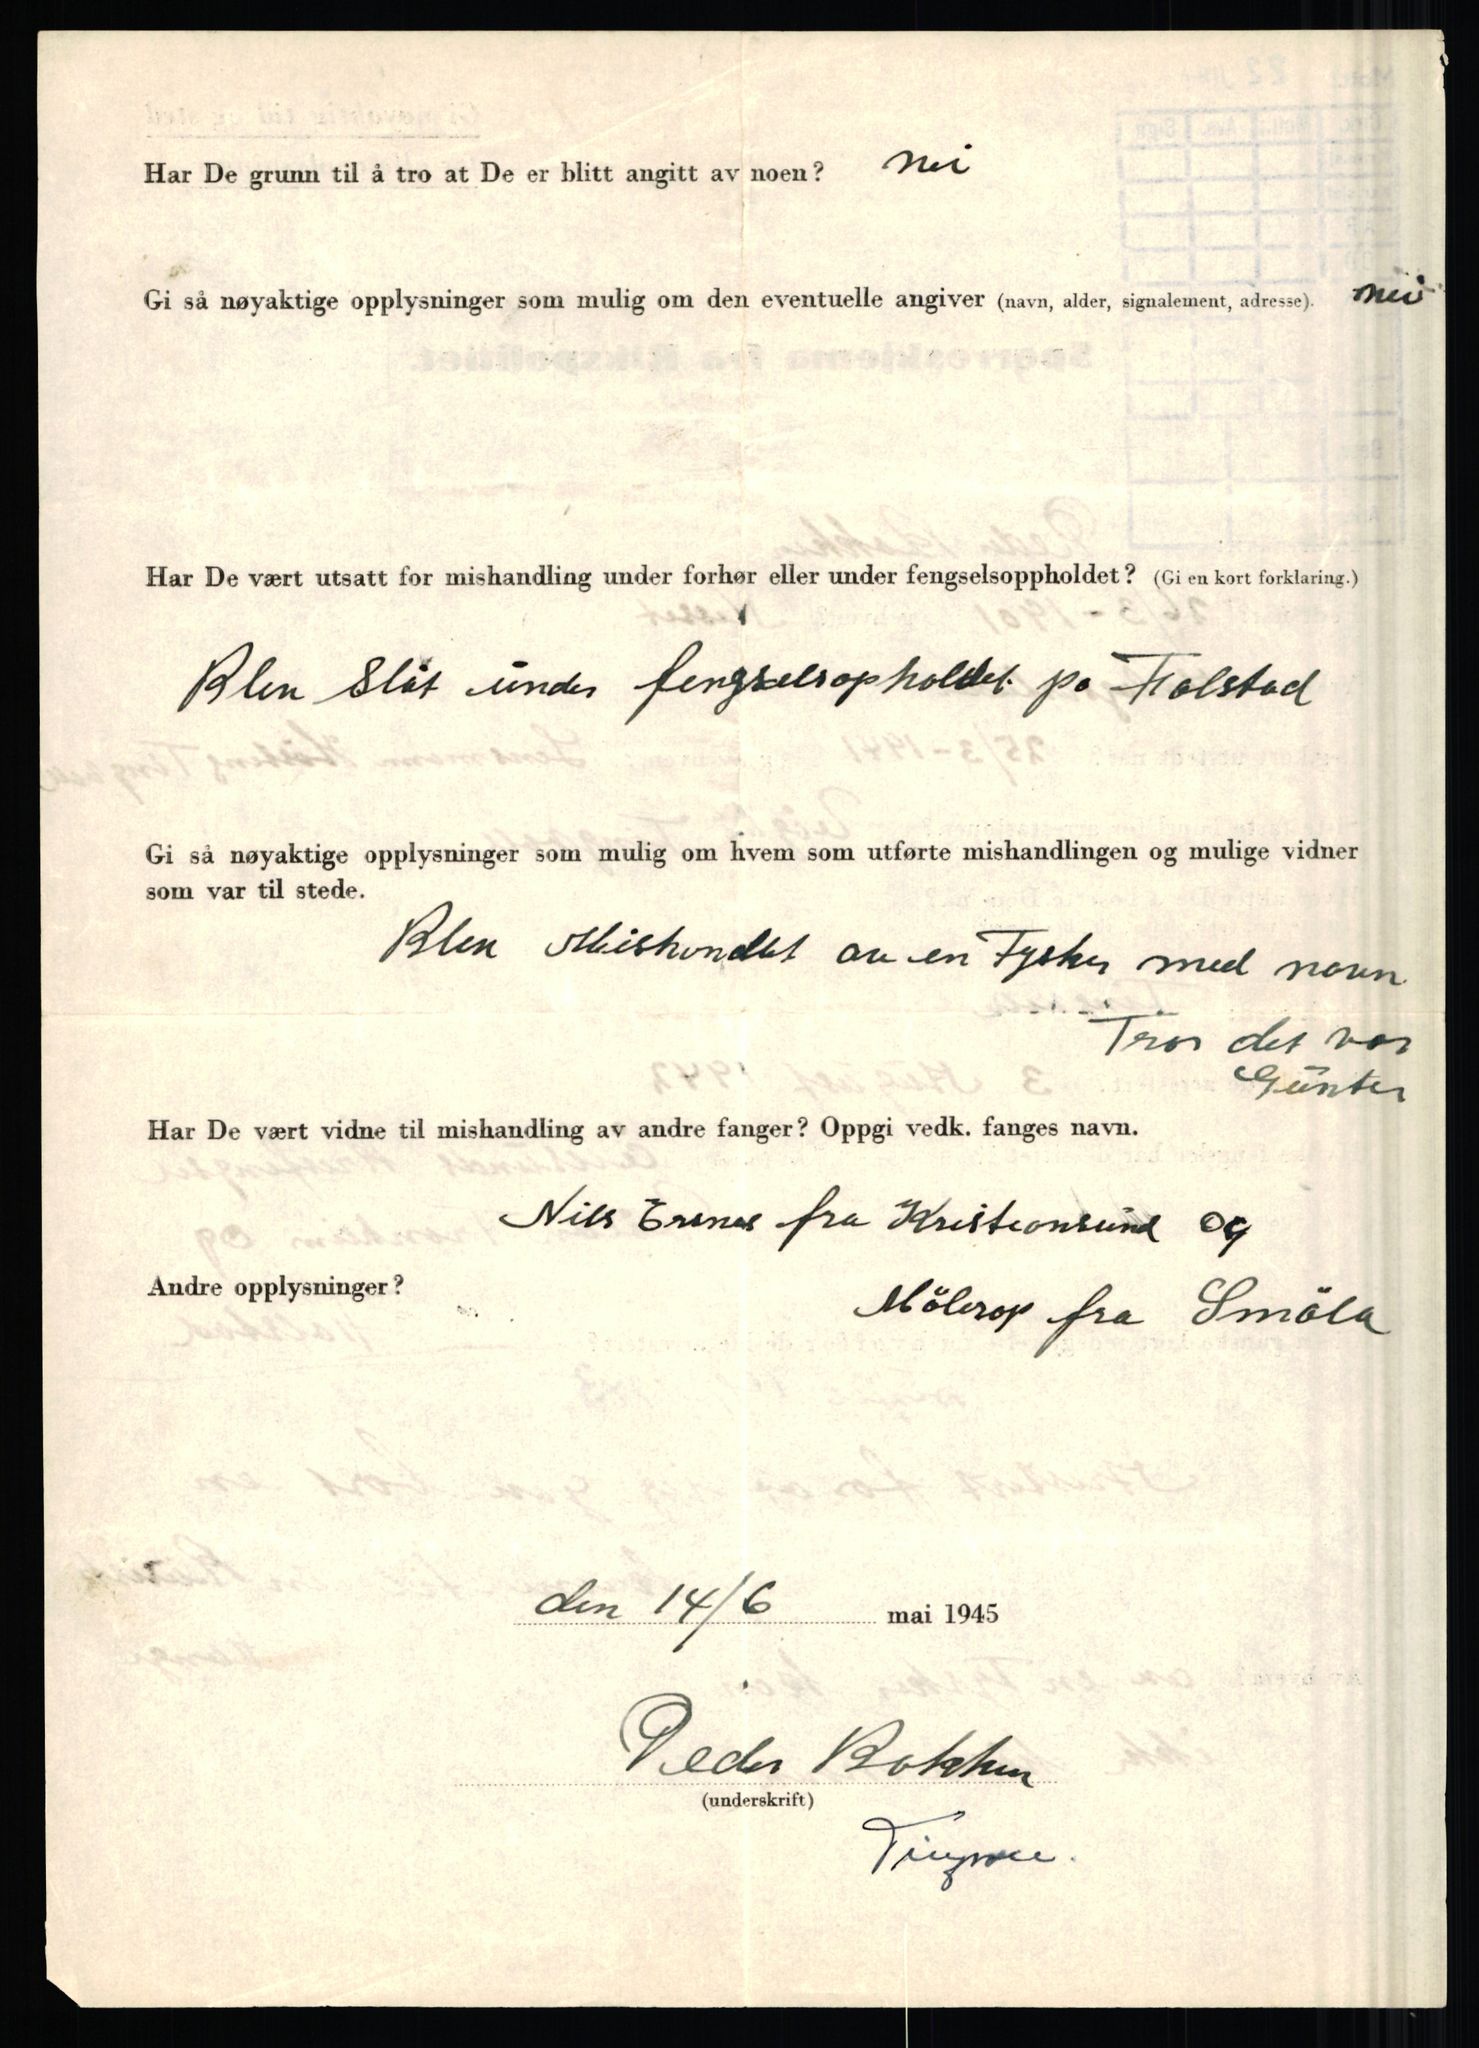 Har De grunn til å tro at De er blitt angitt av noen? Nei
Gi så nøyaktige opplysninger som mulig om den eventuelle angiver (navn, alder, signalement, adresse). Nei
Har De vært utsatt for mishandling under forhør eller under fengselsoppholdet? (Gi en kort forklaring.)
Blev Slåt under fengselsopholdet på Falstad
Gi så nøyaktige opplysninger som mulig om hvem som utførte mishandlingen og mulige vidner
som var til stede.
Blev Mishandlet av en Tysker med navn
Tror det var
Günter
Har De vært vidne til mishandling av andre fanger? Oppgi vedk. fanges navn.
Nils fra Kristiansund og
Andre opplysninger?
fra Smöla
den 14/6 mai 1945
Peder Bakken
(underskrift)